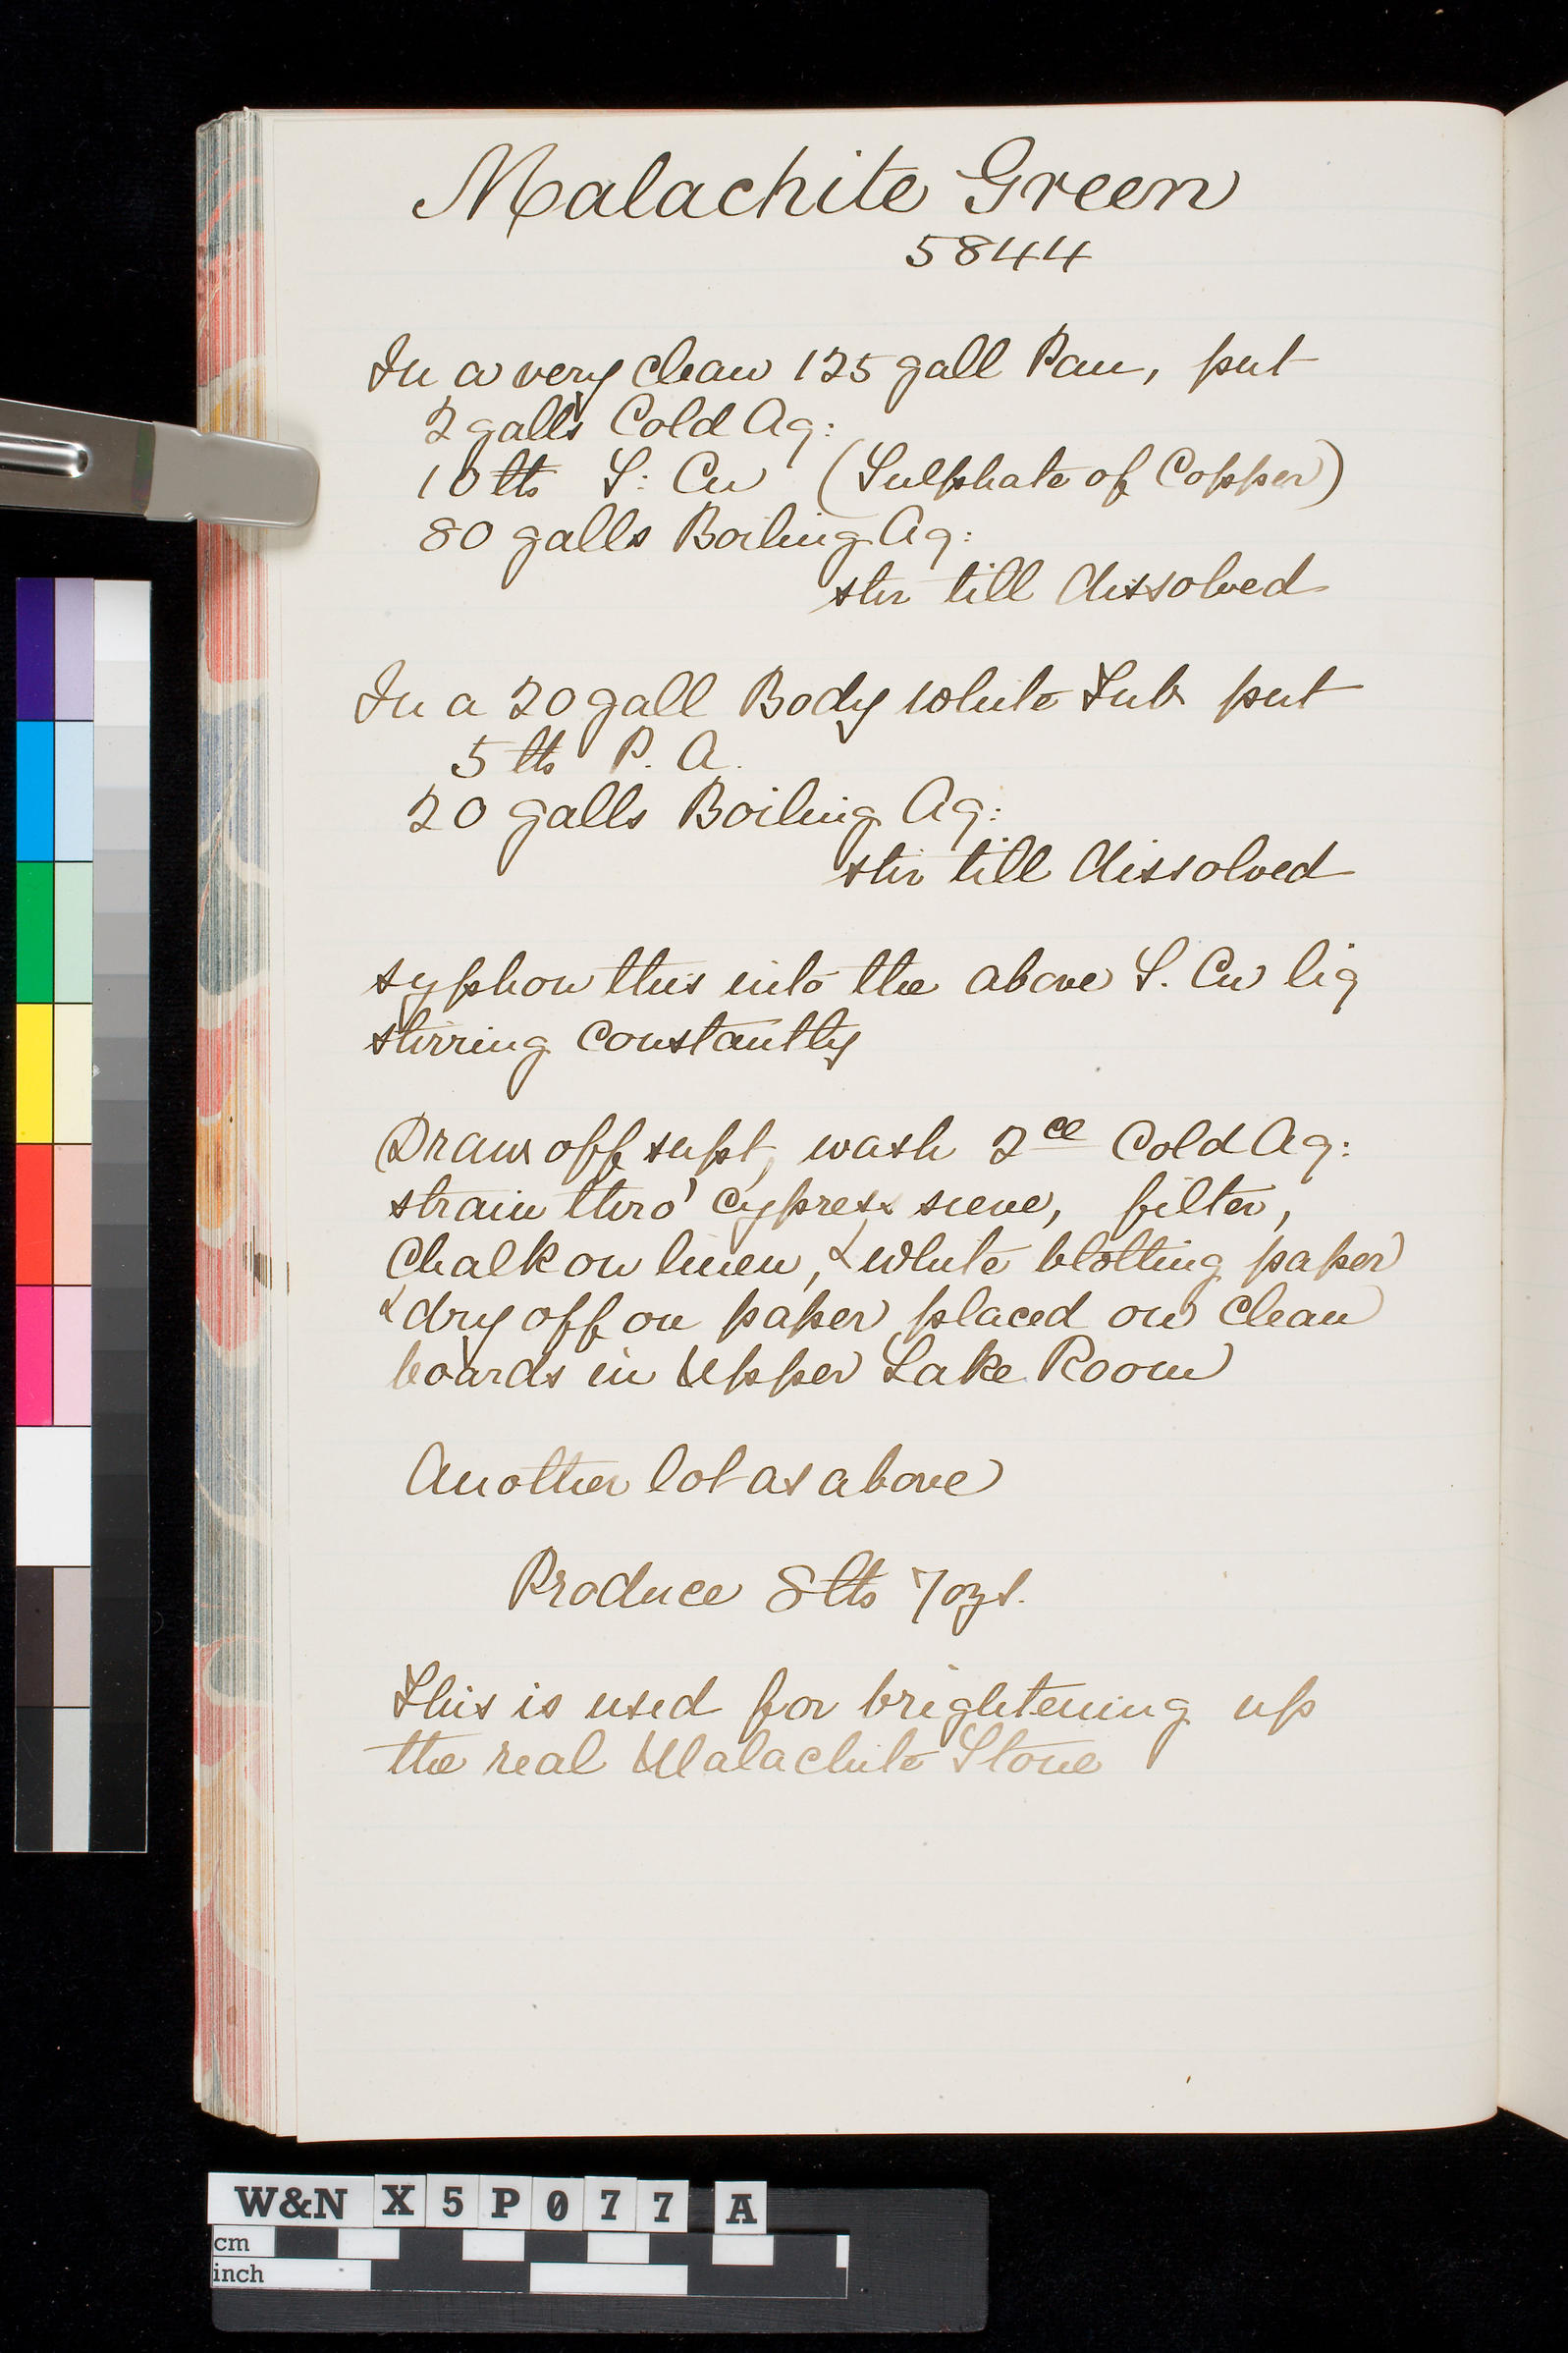 Malachite Green
5844
In a very clean 125 gall Pan, put
2 galls Cold Aq:
10 lbs S: Cu (Sulphate of Copper)
80 galls Boiling Aq:
stir till dissolved
In a 20 gall Body white Tub put
5 lbs P. A.
20 galls Boiling Aq:
stir till dissolved
syphon this into the above S. Cu liq
stirring constantly
Draw off supt, wash 2ce Cold Aq:
strain thro' cypress sieve, filter,
Chalk on linen, & white blotting paper
& dry off on paper placed on clean
boards in Upper Lake Room
Another lot as above
Produce 8 lbs 7 ozs.
This is used for brightening up
the real Malachite Stone
W&N X5P077 A
cm
inch